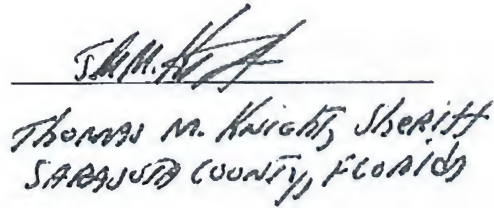 Thomas M. Knight, Sheriff
SARASOTA COUNTY, FLORIDA